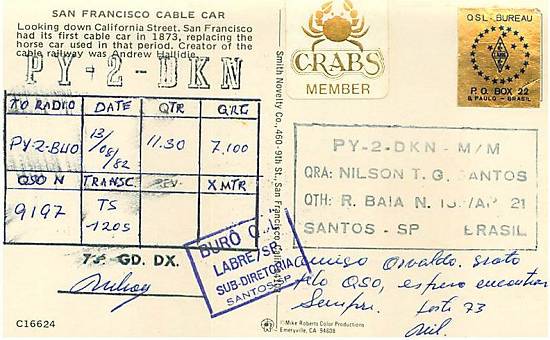 SAN FRANCISCO CABLE CAR
Looking down California Street. San Francisco
had its first cable car in 1873, replacing the
horse car used in that period. Creator of the
cable railway was Andrew Hallidie.
PY-2-DKN
CRABS
MEMBER
QSL BUREAU
P.O. BOX 22
S. PAULO - BRASIL
TO RADIO DATE QTR QRG
PY-2-BUO 13/08/82 11.30 7.100
QSO N TRANSC. X MTR
9197 TS 120S
73 GD. DX.
Smith Novelty Co., 460-9th St., San Francisco, Calif.
PY-2-DKN - M/M
QRA: NILSON T. G. SANTOS
QTH: R. BAIA N. AP 21
SANTOS - SP BRASIL
BURÔ
LABRE/SP
SUB-DIRETORIA
SANTOS SP
Amigo Osvaldo. grato
pelo QSO, espero encontrar
Sempre. 73
Nil.
C16624
©Mike Roberts Color Productions
Emeryville, CA 94608